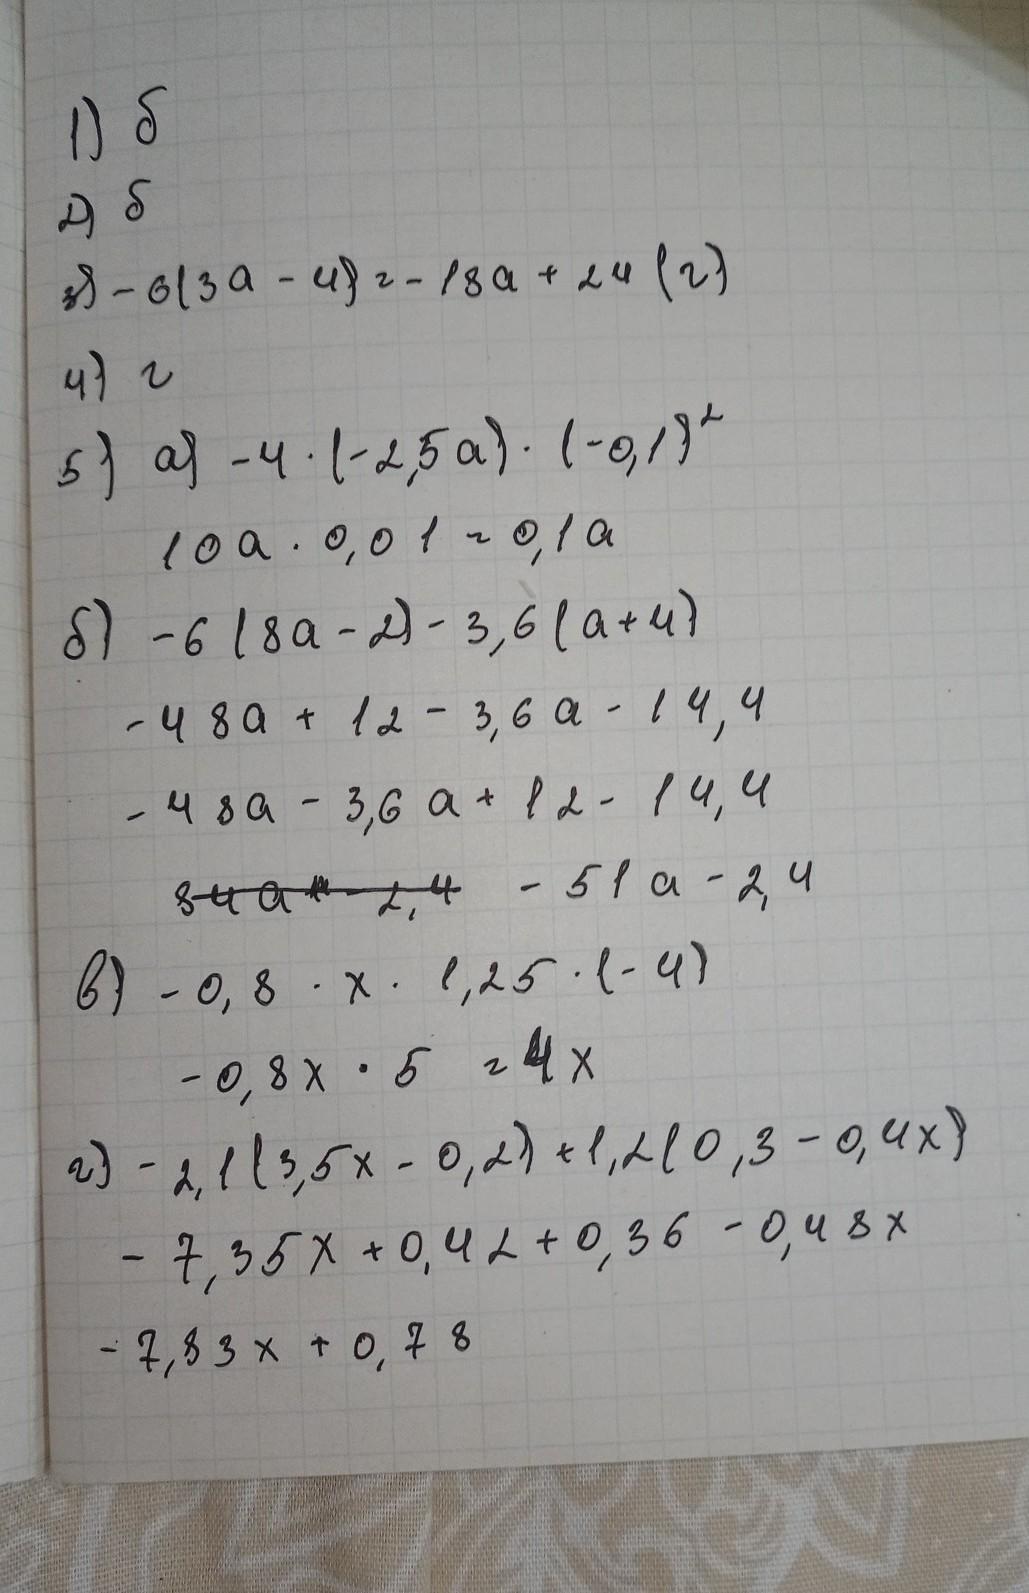 1) б
2) б
3) -6(3a - 4) = -18a + 24 (г)
4) г
5) а) -4 · (-2,5a) · (-0,1)²
10a · 0,01 = 0,1a
б) -6 (8a - 2) - 3,6 (a + 4)
-48a + 12 - 3,6a - 14,4
-48a - 3,6a + 12 - 14,4
-51a - 2,4
в) -0,8 · x · 1,25 · (-4)
-0,8x · 5 = 4x
г) -2,1 (3,5x - 0,2) + 1,2 (0,3 - 0,4x)
-7,35x + 0,42 + 0,36 - 0,48x
-7,83x + 0,78